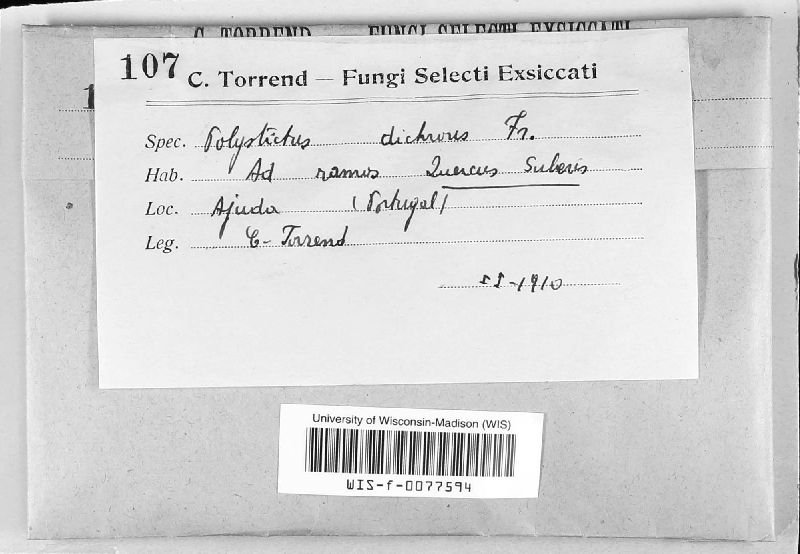 C. TORREND FUNGI SELECTI EXSICCATI
107 C. Torrend — Fungi Selecti Exsiccati
Spec. Polystictus dichrous Fr.
Hab. Ad ramos Quercus Suberis
Loc. Ajuda (Portugal)
Leg. C- Torrend
-1910
University of Wisconsin-Madison (WIS)
WIS-f-0077594